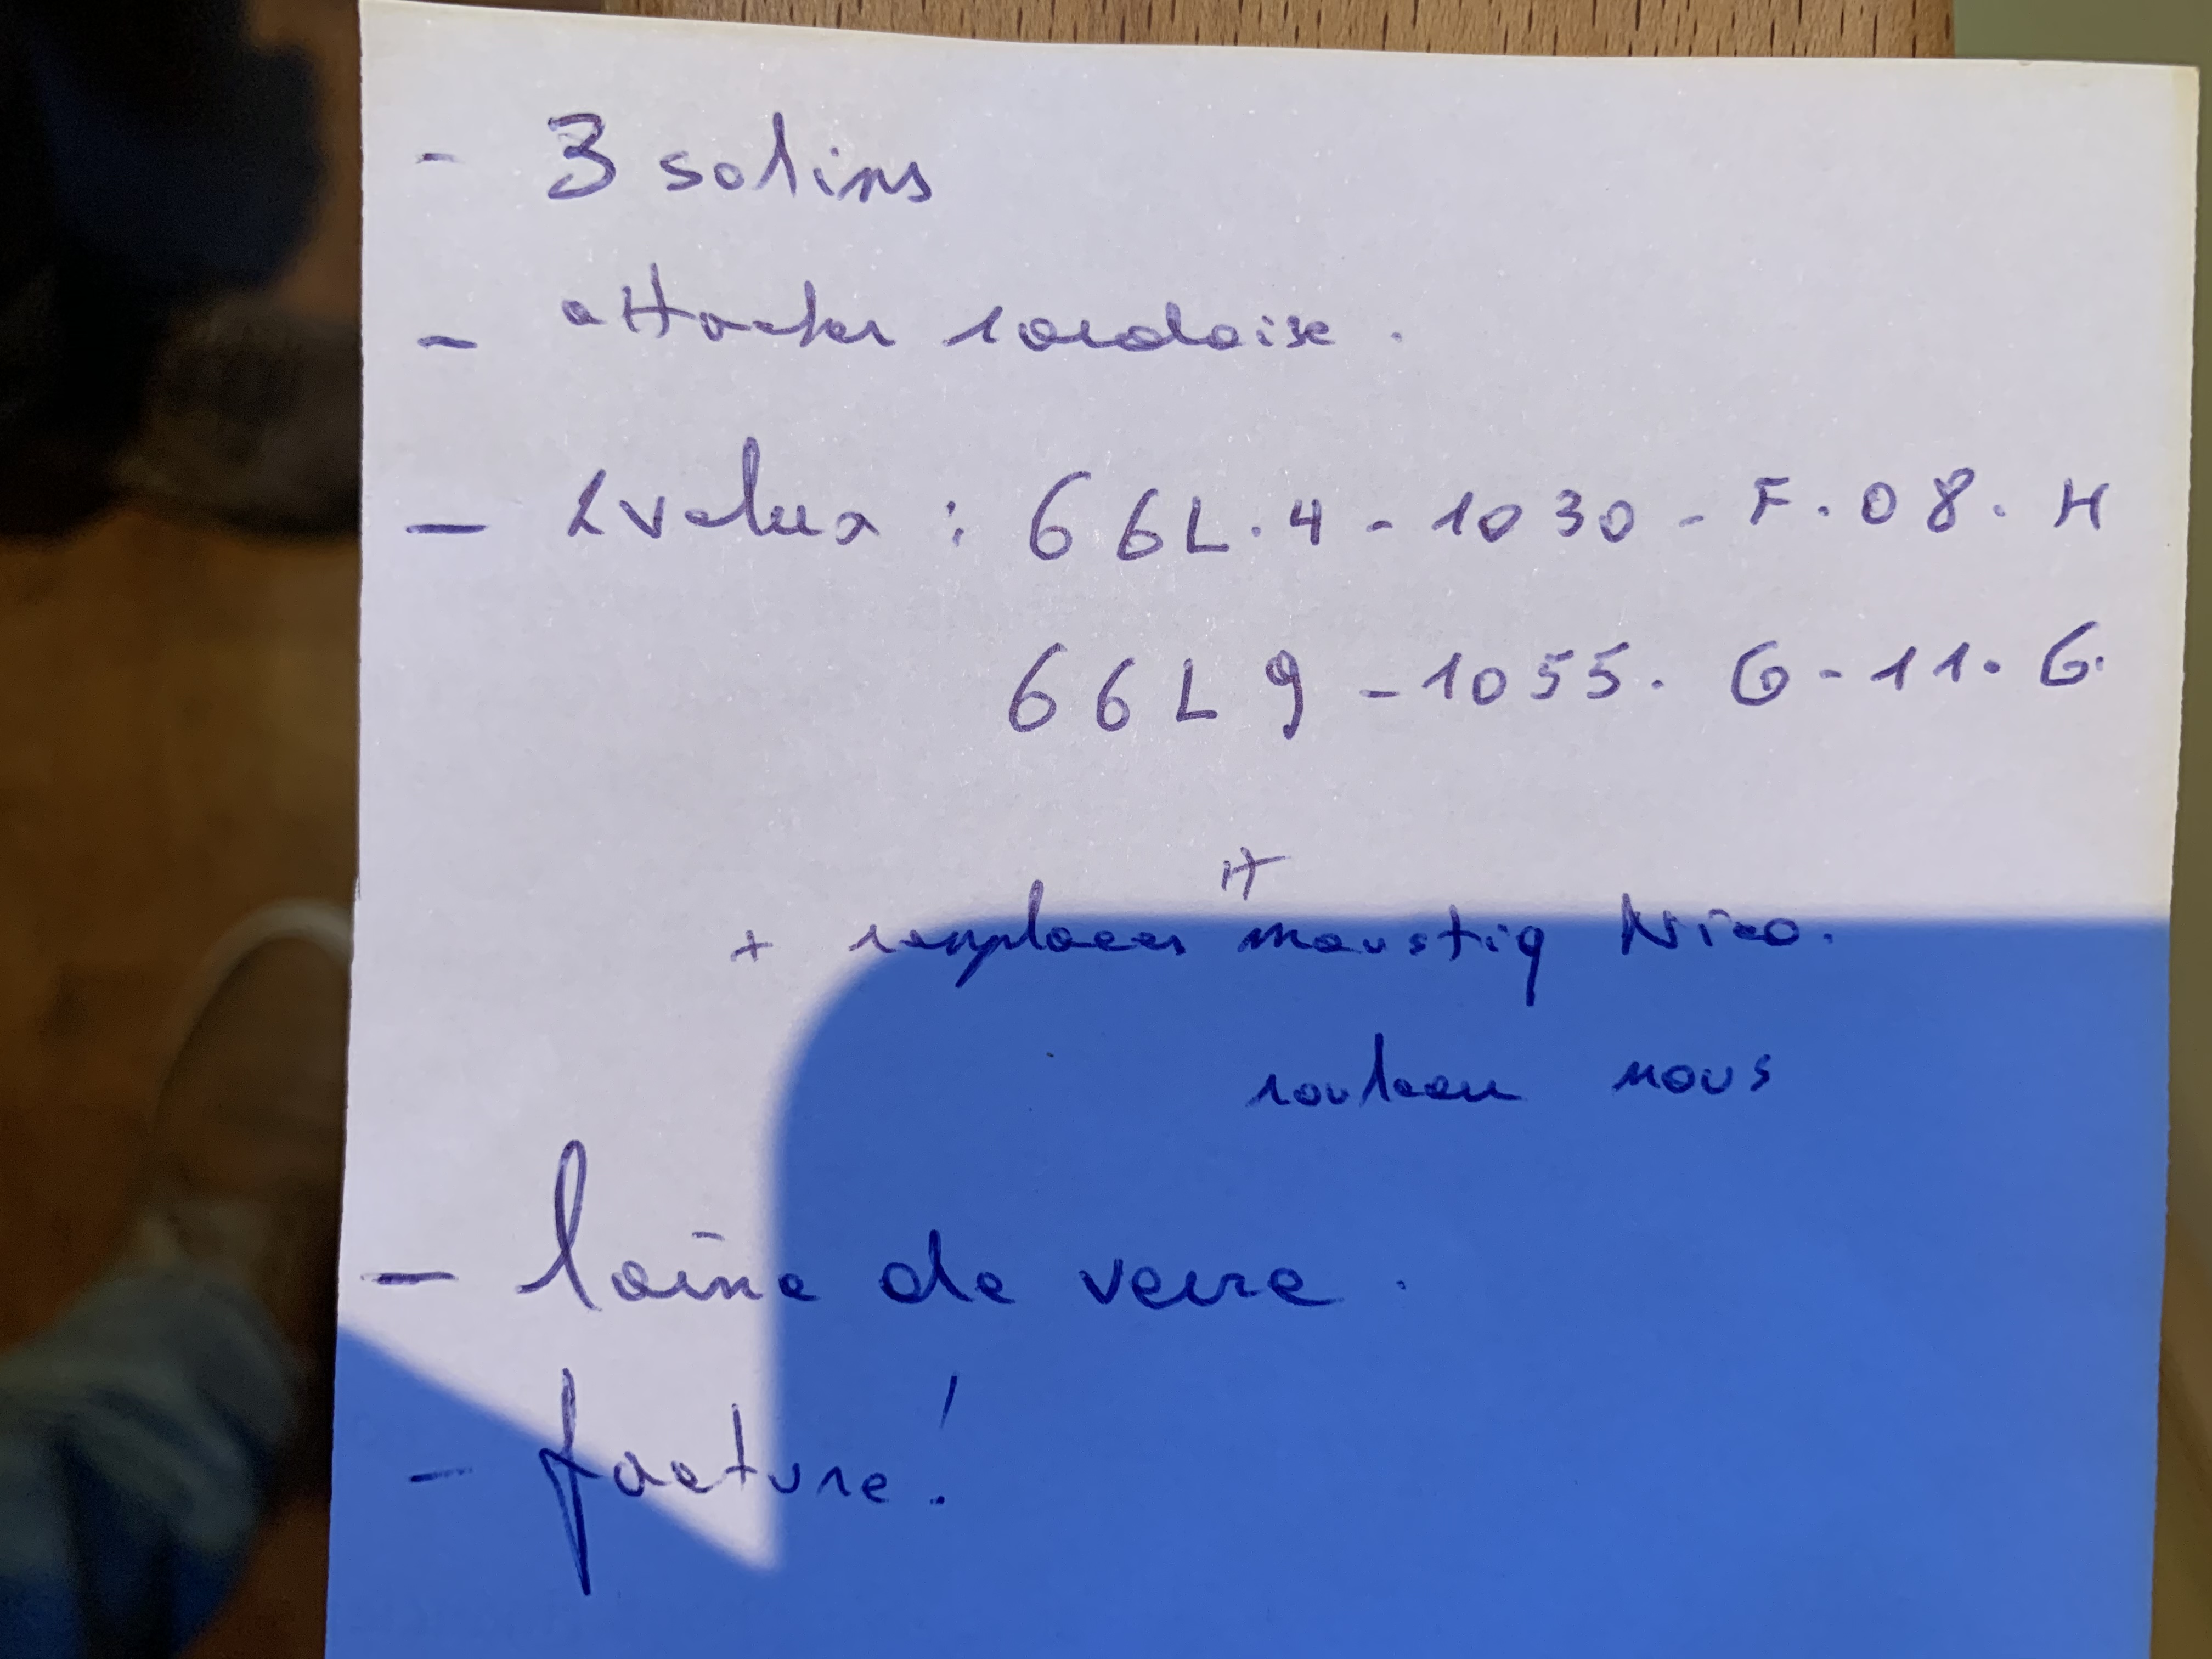 - 3 solins
- attacher rardoise.
- 2 velux : 66L.4 - 1030 - F.08.H
66L9 - 1055. G-11.G.
+ remplacer moustiq Nico.
rouleau nous
- laine de verre.
- facture !